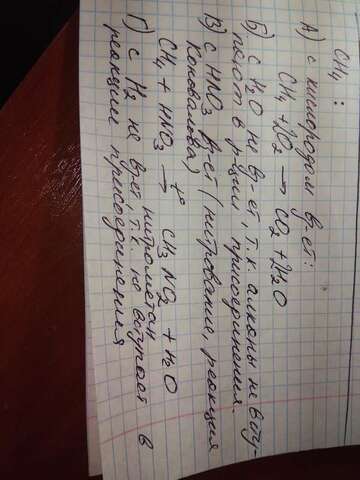 CH4 :
А) с кислородом вз-ет:
CH4 + 2O2 → CO2 + 2H2O
Б) с H2O не вз-ет, т.к. алканы не всту-
пают в р-ции присоединения.
В) с HNO3 вз-ет (нитрование, реакция
Коновалова)
CH4 + HNO3 →t° CH3NO2 + H2O
нитрометан
Г) с H2 не вз-ет, т.к. не вступает в
реакции присоединения